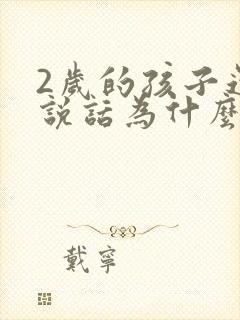 2歲的孩子
說話為什麼
戴寧